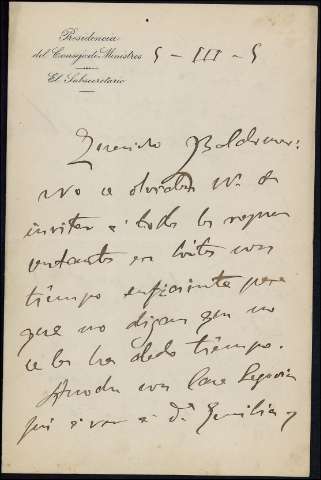 Presidencia
del Consejo de Ministros 5 - III - 5
El Subsecretario
Querido Baldomero:
No se olviden Vs. de
invitar a todos los repre
sentantes en Cortes con
tiempo suficiente para
que no digan que no
se les ha dado tiempo.
Anoche con Cara Segovia
fui a ver a Dª Emilia y